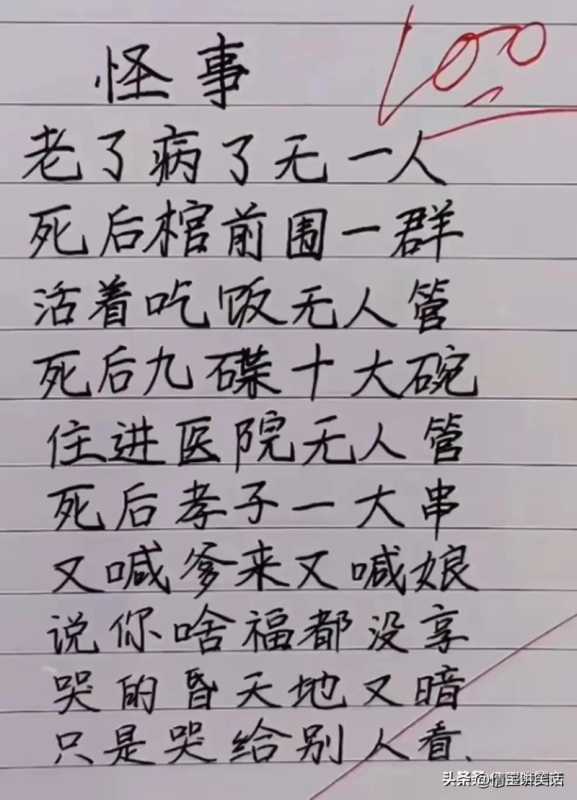 怪事
100
老了病了无一人
死后棺前围一群
活着吃饭无人管
死后九碟十大碗
住进医院无人管
死后孝子一大串
又喊爹来又喊娘
说你啥福都没享
哭的昏天地又暗
只是哭给别人看.
头条